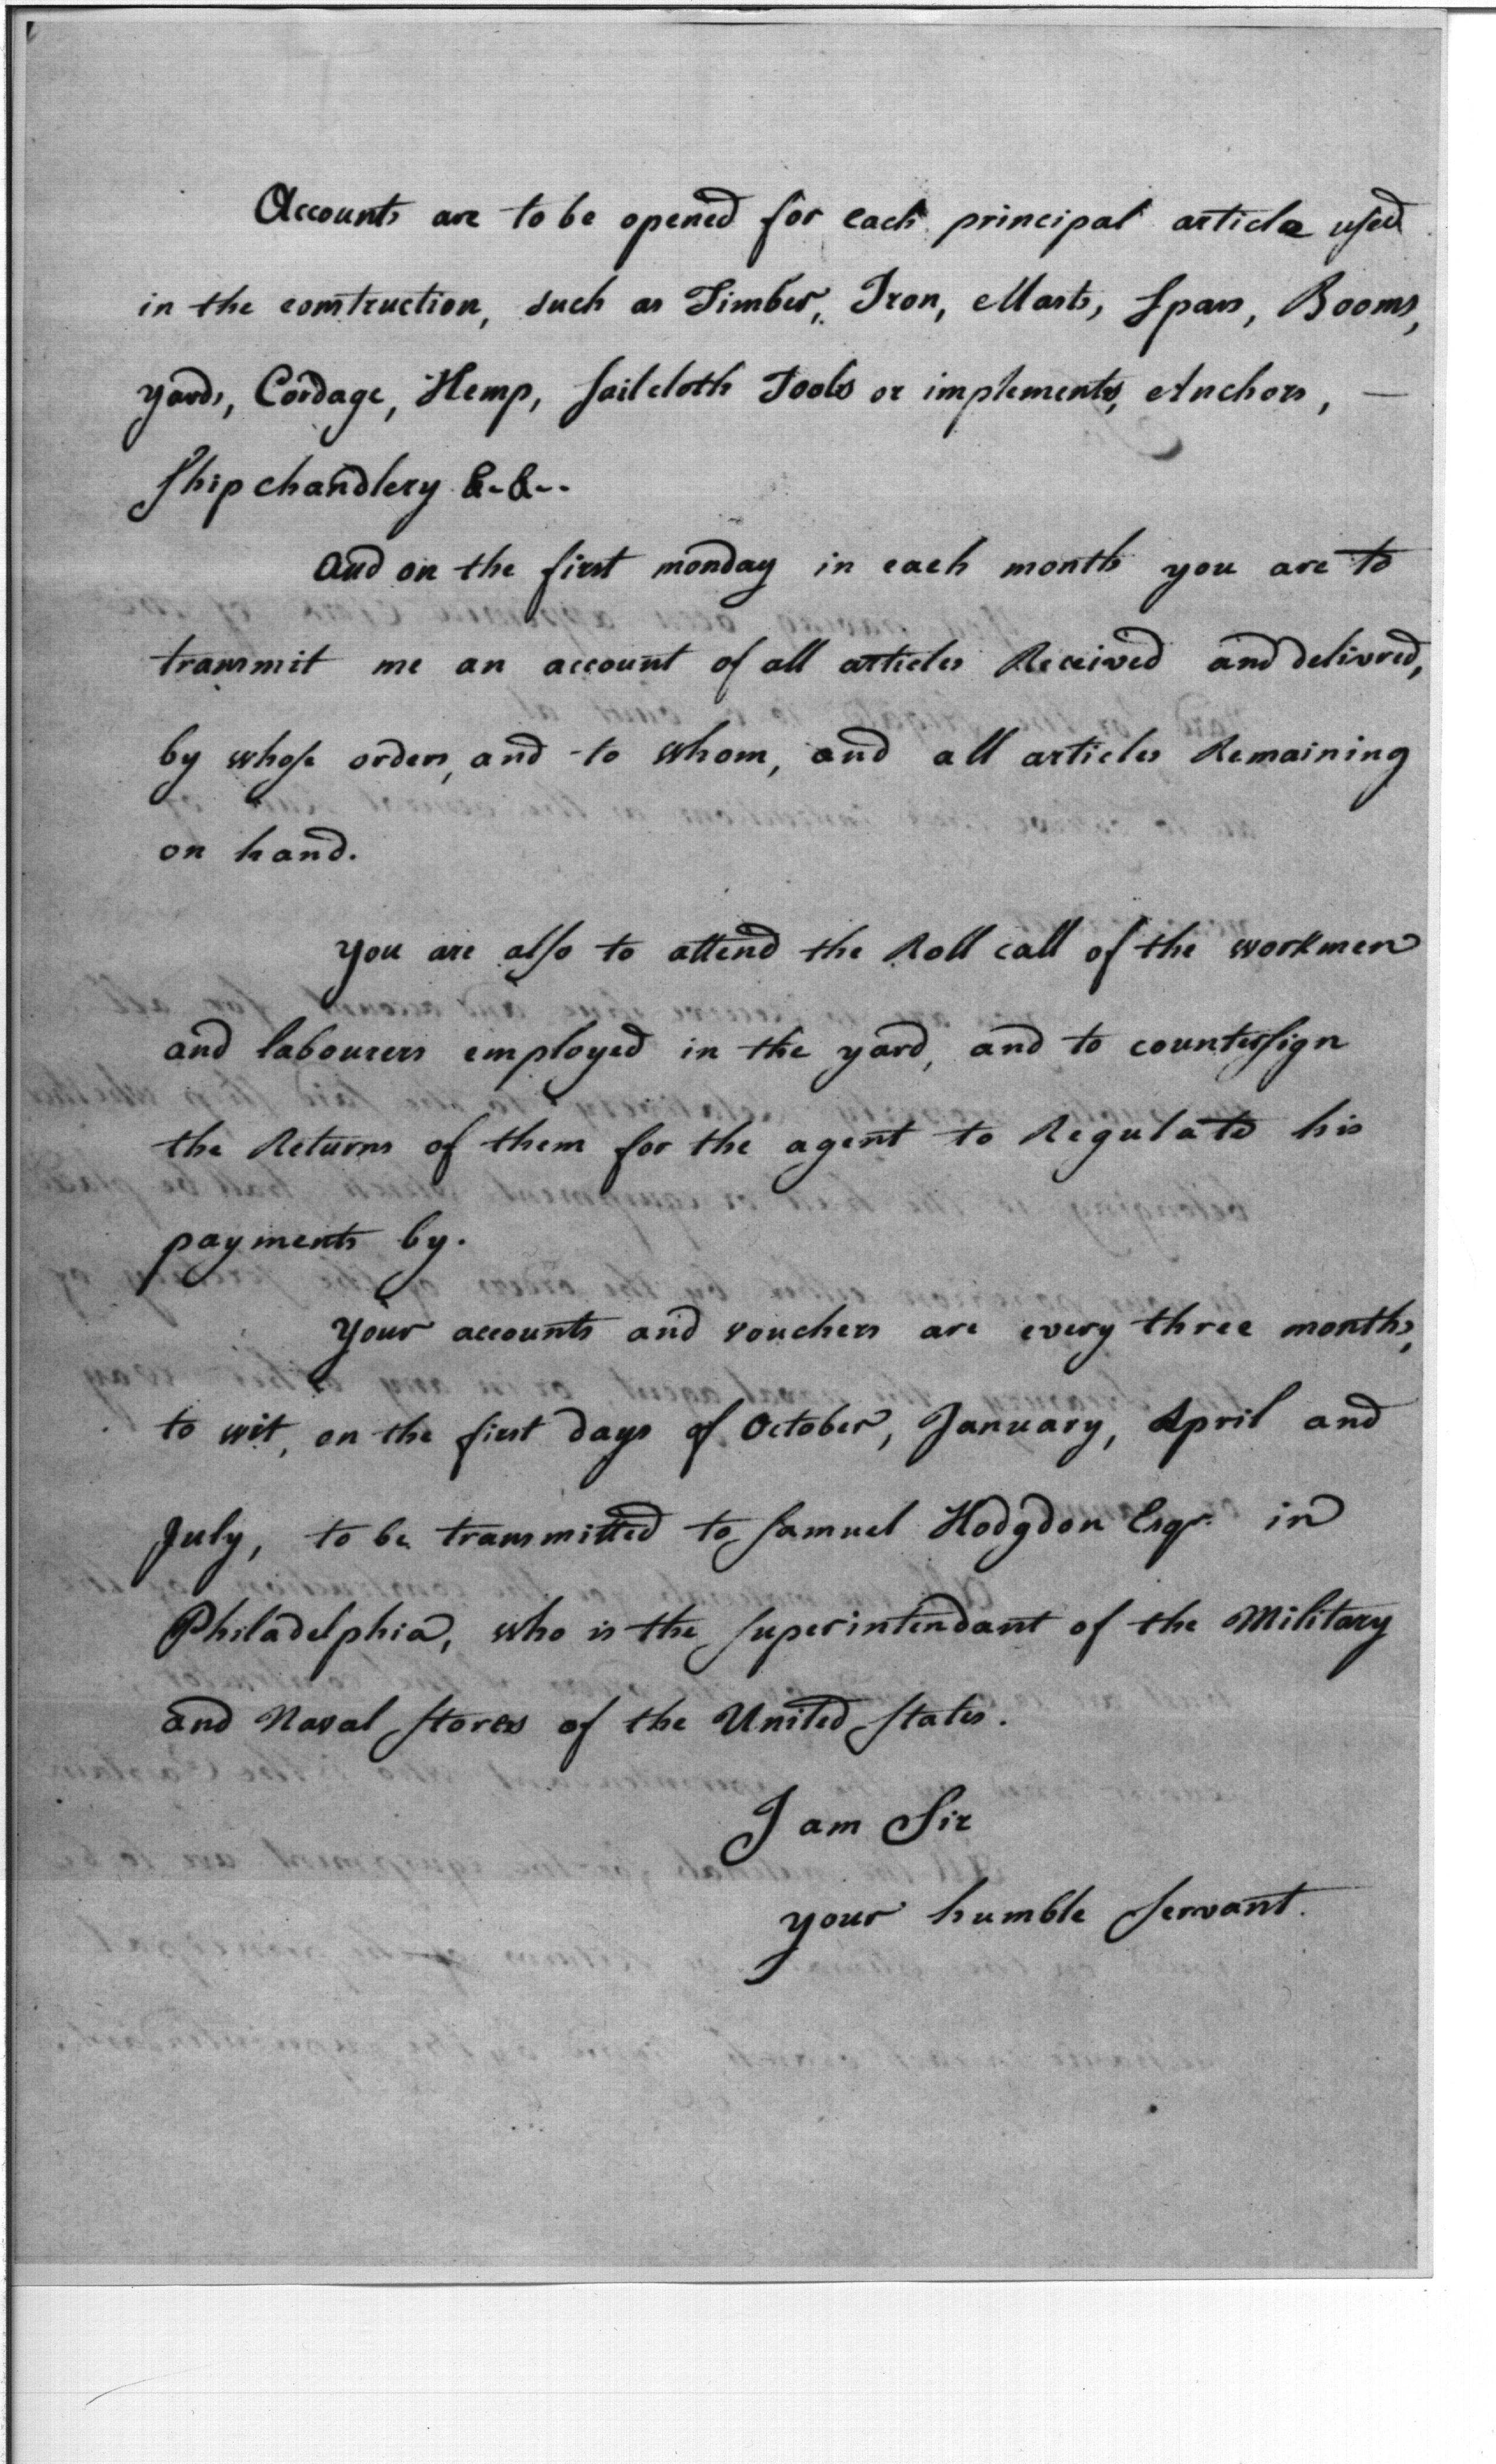 Accounts are to be opened for each principal article used
in the construction, such as Timber, Iron, Masts, Spars, Booms,
yards, Cordage, Hemp, sailcloth Tools or implements, Anchors, —
Ship chandlery &-&--
And on the first monday in each month you are to
transmit me an account of all articles Received and delivred,
by whose orders, and to whom, and all articles Remaining
on hand.
You are also to attend the Roll call of the workmen
and labourers employed in the yard, and to countersign
the Returns of them for the agent to Regulate his
payments by.
Your accounts and vouchers are every three months,
to wit, on the first days of October, January, April and
July, to be transmitted to Samuel Hodgdon Esqr. in
Philadelphia, who is the superintendant of the Military
and Naval Stores of the United States.
I am Sir
your humble Servant.